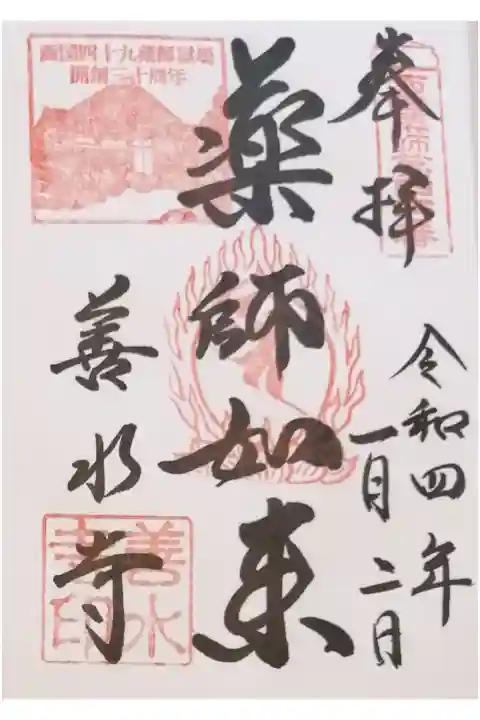 奉拝
令和四年
一月二日
薬師如来
善水寺
西国四十九薬師霊場
開創三十周年
善水
寺印